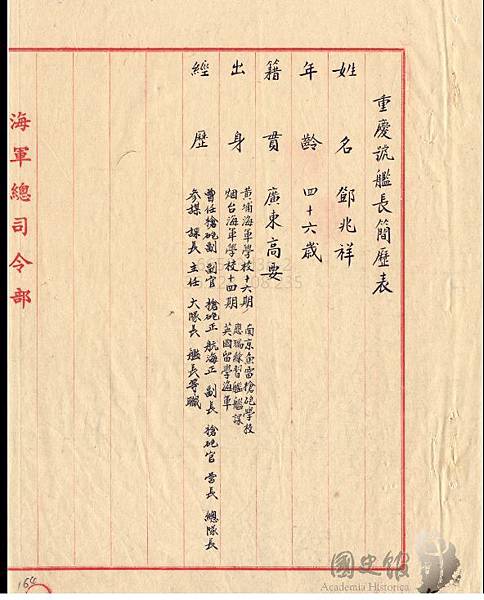 重慶號艦長簡歷表
姓名 鄧兆祥
年齡 四十六歲
籍貫 廣東高要
出身 黃埔海軍學校十六期 南京魚雷槍砲學校
烟台海軍學校十四期 應瑞練習艦艦課
英國留學海軍
經歷 曾任槍砲副 副官 槍砲正 航海正 副長 槍砲官 營長 總隊長
參謀 課長 主任 大隊長 艦長等職
海軍總司令部
164
國史館
Academia Historica